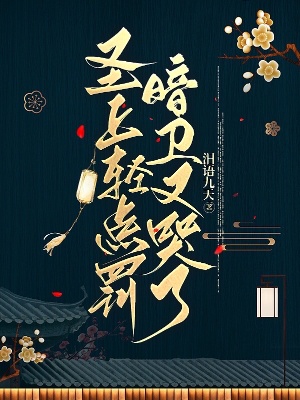 圣上轻点罚
暗卫又哭了
泪语几天